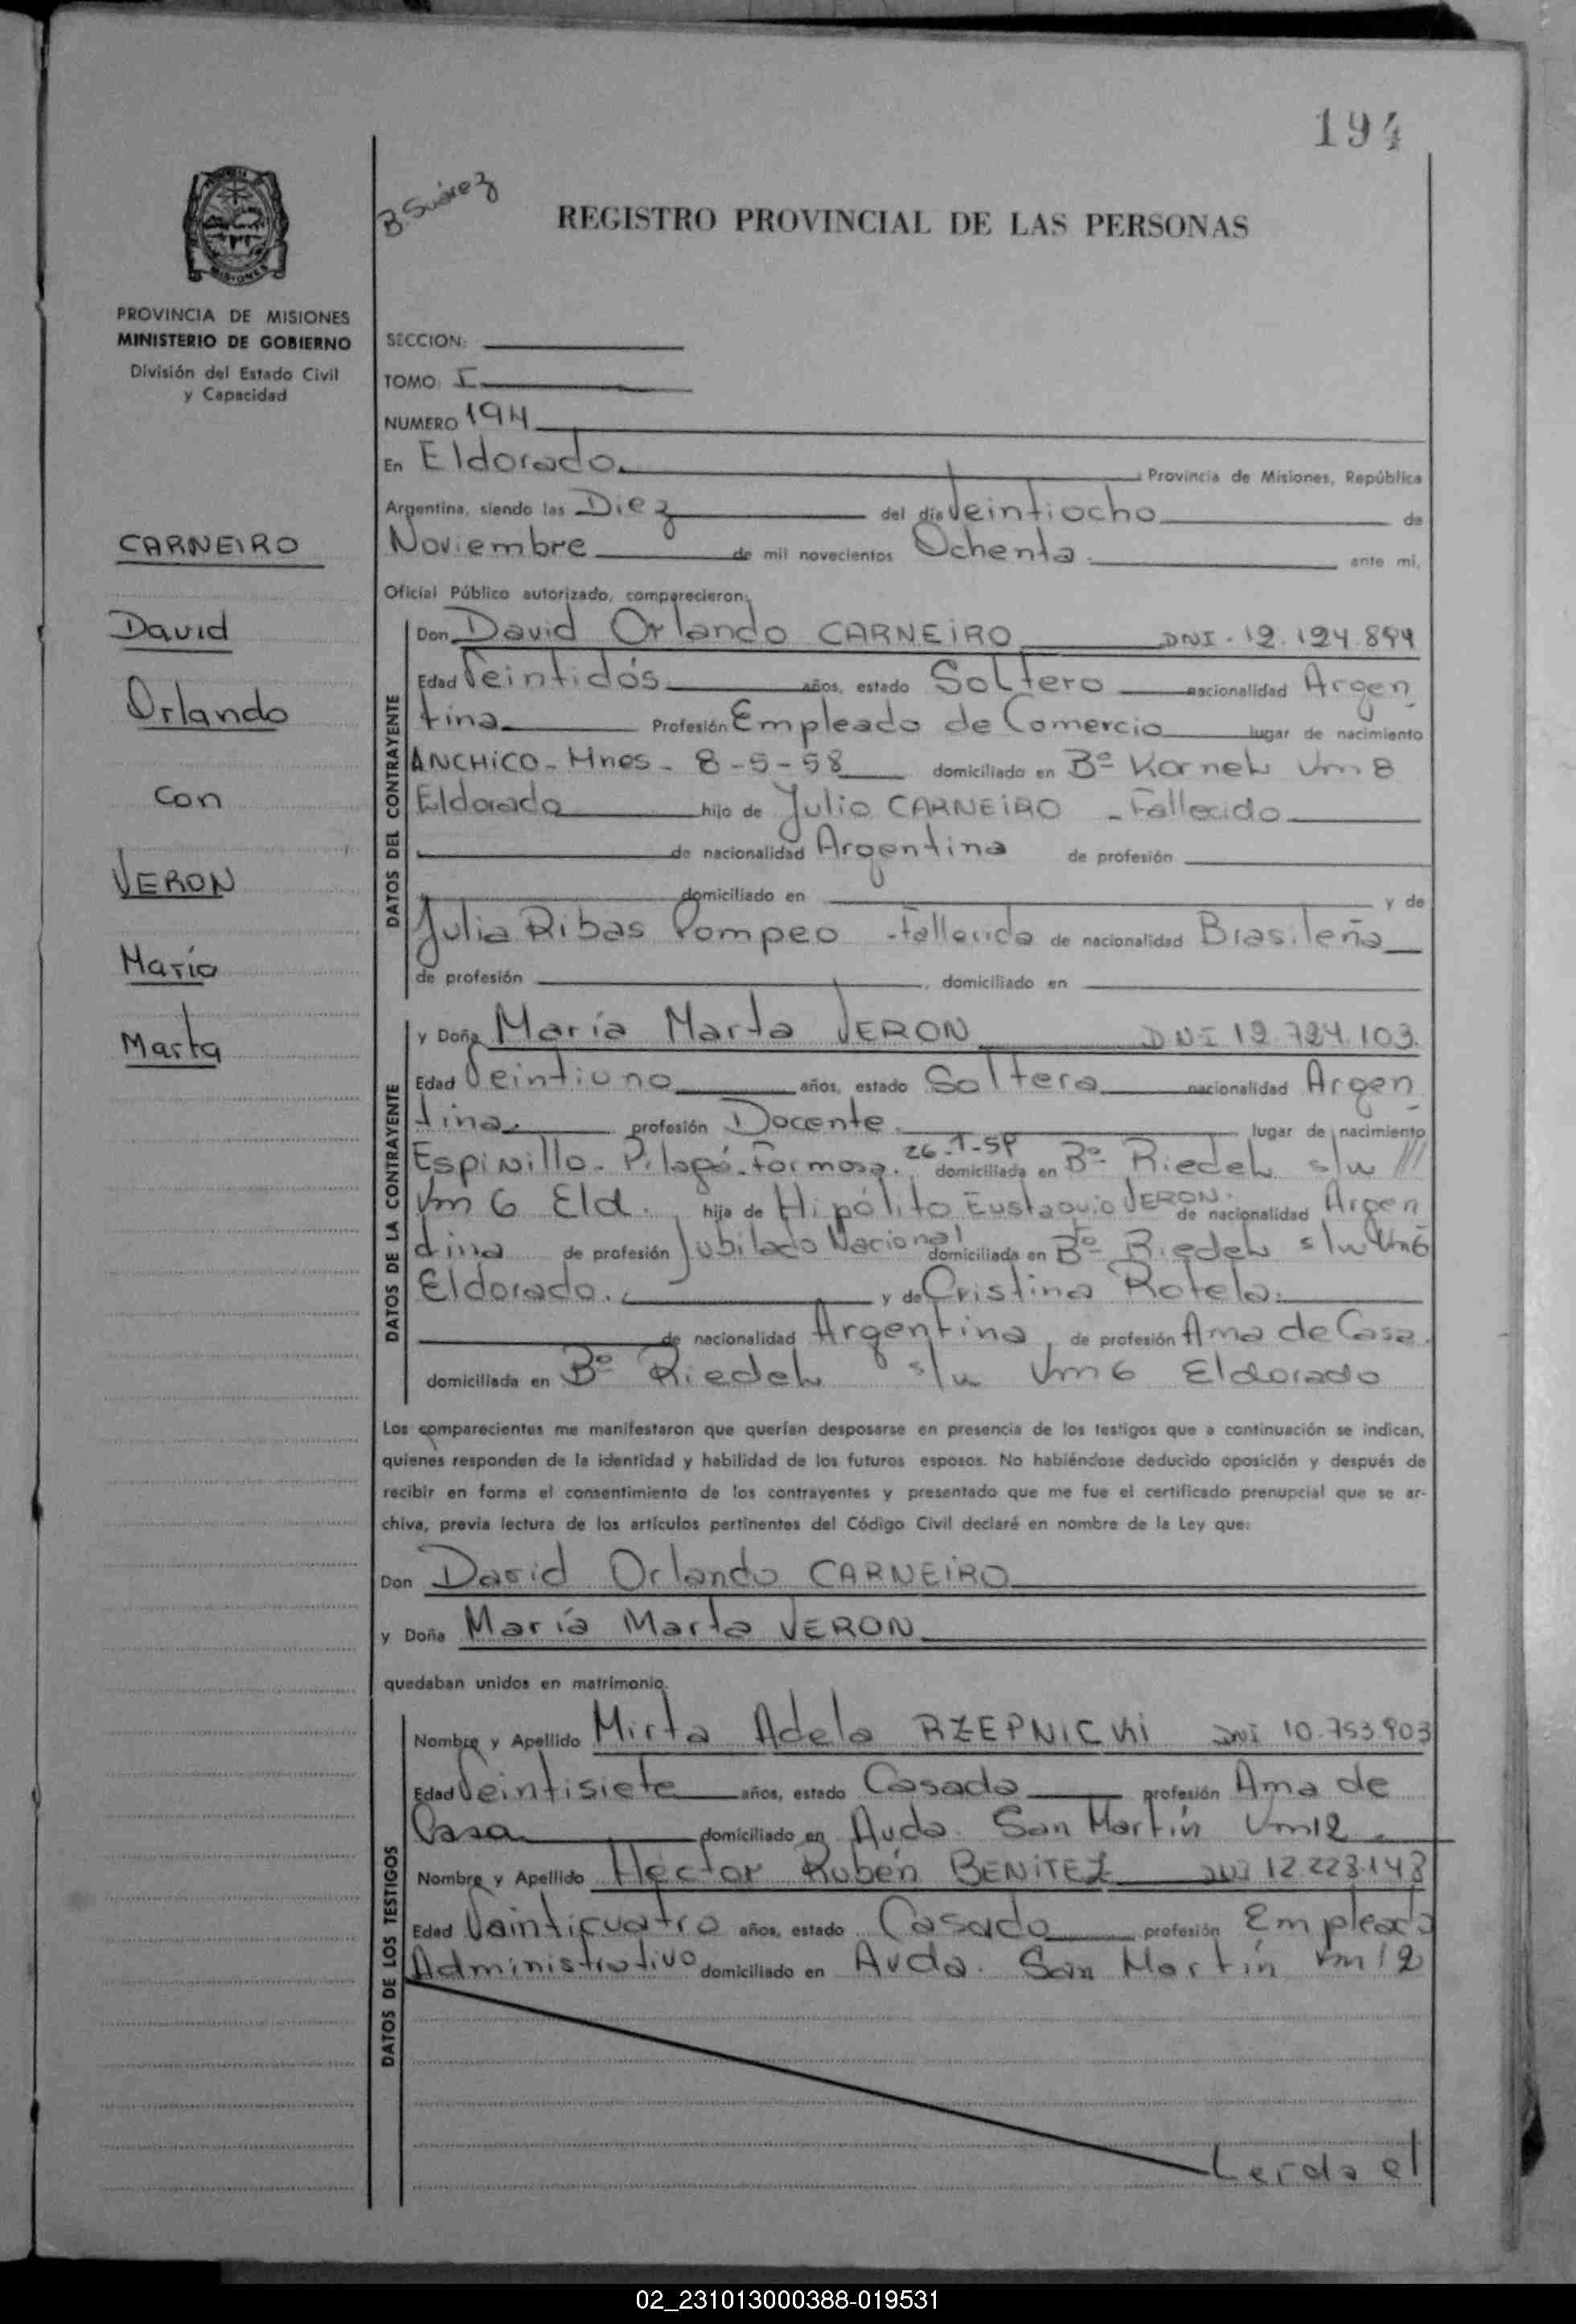 194
B. Suárez
REGISTRO PROVINCIAL DE LAS PERSONAS
MISIONES
PROVINCIA DE MISIONES
MINISTERIO DE GOBIERNO
División del Estado Civil
y Capacidad
SECCION:
TOMO: I
NUMERO 194
En Eldorado. Provincia de Misiones, República
Argentina, siendo las Diez del día Veintiocho de
Noviembre de mil novecientos Ochenta. ante mi,
Oficial Público autorizado, comparecieron:
CARNEIRO
David
Orlando
Con
VERON
María
Marta
DATOS DEL CONTRAYENTE
Don David Orlando CARNEIRO DNI. 12.124.894
Edad Veintidós años, estado Soltero nacionalidad Argen
tina Profesión Empleado de Comercio lugar de nacimiento
ANCHICO - Mnes - 8-5-58 domiciliado en Bº Korneh Km 8
Eldorado hijo de Julio CARNEIRO - Fallecido
de nacionalidad Argentina de profesión
domiciliado en y de
Julia Ribas Pompeo - fallecida de nacionalidad Brasileña
de profesión , domiciliado en
DATOS DE LA CONTRAYENTE
y Doña María Marta VERON DNI 12.724.103.
Edad Veintiuno años, estado Soltera nacionalidad Argen
tina. profesión Docente. lugar de nacimiento
Espinillo - Pilagá - Formosa. 26-1-59 domiciliada en Bº Riedel s/n
Km 6 Eld. hija de Hipólito Eustaquio VERON. de nacionalidad Argen
tina de profesión Jubilado Nacional domiciliada en Bº Riedel s/n Km6
Eldorado. y de Cristina Rotela.
de nacionalidad Argentina, de profesión Ama de Casa.
domiciliada en Bº Riedel s/n Km 6 Eldorado
Los comparecientes me manifestaron que querían desposarse en presencia de los testigos que a continuación se indican,
quienes responden de la identidad y habilidad de los futuros esposos. No habiéndose deducido oposición y después de
recibir en forma el consentimiento de los contrayentes y presentado que me fue el certificado prenupcial que se ar-
chiva, previa lectura de los artículos pertinentes del Código Civil declaré en nombre de la Ley que:
Don David Orlando CARNEIRO
y Doña María Marta VERON
quedaban unidos en matrimonio.
DATOS DE LOS TESTIGOS
Nombre y Apellido Mirta Adela RZEPNICKI DNI 10.753.903
Edad Veintisiete años, estado Casada profesión Ama de
Casa domiciliado en Avda. San Martín Km12.
Nombre y Apellido Héctor Rubén BENÍTEZ DNI 12.223.148
Edad Veinticuatro años, estado Casado profesión Empleado
Administrativo domiciliado en Avda. San Martín Km 12
Lerda el
02_231013000388-019531